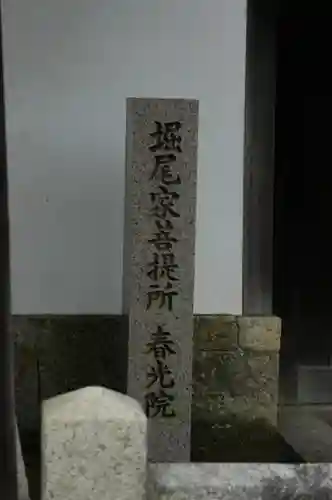 堀尾家菩提所 春光院